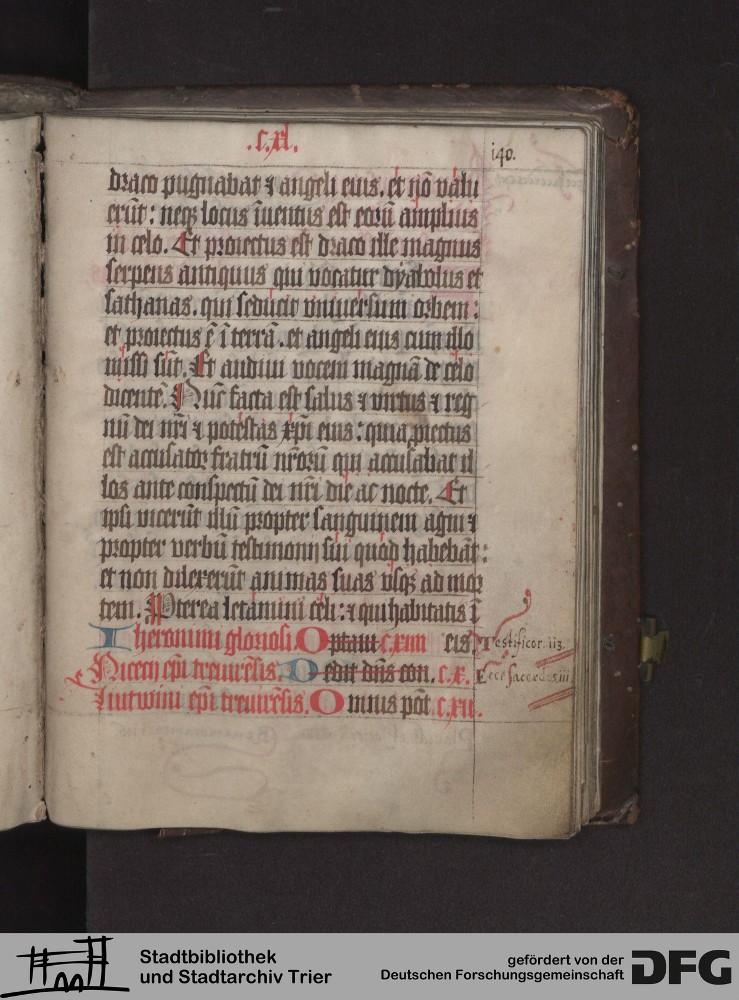 .c.xl.
140.
draco pugnabat ⁊ angeli eius. et nō valu
erūt: neqꝫ locus īuentus est eorū amplius
in celo. Et proiectus est draco ille magnus
serpens antiquus qui vocatur dyabolus et
sathanas. qui seducit vniuersum orbem:
et proiectus ē ī terrā. et angeli eius cum illo
missi sūt. Et audiui vocem magnā de celo
dicentē. Nūc facta est salus ⁊ virtus ⁊ reg
nū dei nr̄i ⁊ potestas xp̄i eius: quia ꝓiectus
est accusator fratrū nr̄orū qui accusabat il
los ante conspectū dei nr̄i die ac nocte. Et
ipsi vicerūt illū propter sanguinem agni ⁊
propter verbū testimonij sui quod habebāt:
et non dilexerūt animas suas vsqꝫ ad mor
tem. Pterea letamini celi: ⁊ qui habitatis ī
Iheronimi gloriosi. Optauit c.xiiii eis.
Testificor. iij.
Nicecij ep̄i treuirēsis. Dedit dn̄s con. c.x.
Ecce sacerdos iiij
Liutwini ep̄i treuirēsis. Omnis pōt. c.xii.
Stadtbibliothek
und Stadtarchiv Trier
gefördert von der
Deutschen Forschungsgemeinschaft
DFG